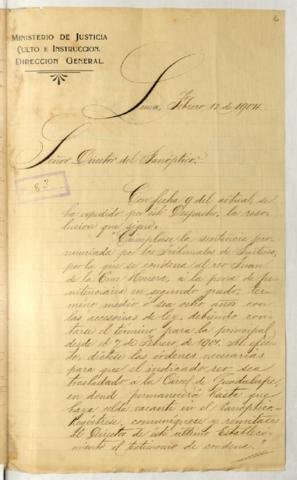 6
MINISTERIO DE JUSTICIA
CULTO E INSTRUCCION.
DIRECCION GENERAL.
Lima, Febrero 12 de 1904.
Señor Director del Panóptico.
82
Con fecha 9 del actual se
ha expedido por este Despacho, la reso-
lucion que sigue:
"Cumplase la sentencia pro-
nunciada por los Tribunales de Justicia,
por la que se condena al reo Juan
de la Cruz á la pena de pe-
nitenciaria en segundo grado, tér-
mino medio ó sea ocho años con
las accesorias de ley, debiendo con-
tarse el término para la principal
desde el 7 de Febrero de 1901. Al efec-
to, dictese las órdenes necesarias
para que el indicado reo sea
trasladado a la Carcel de Guadalupe,
en donde permanecerá hasta que
haya celda vacante en el Panóptico.
Regístrese, comuníquese y remítase
al Director de este último Estableci-
miento el testimonio de condena."